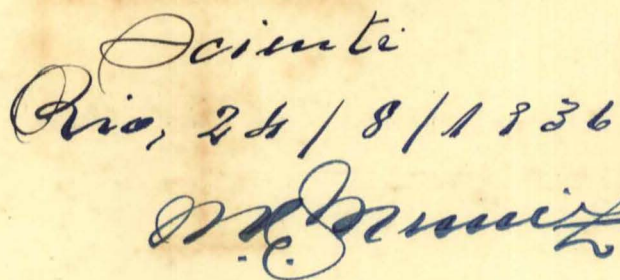 Sciente
Rio, 24/8/1936
M. C. Muniz